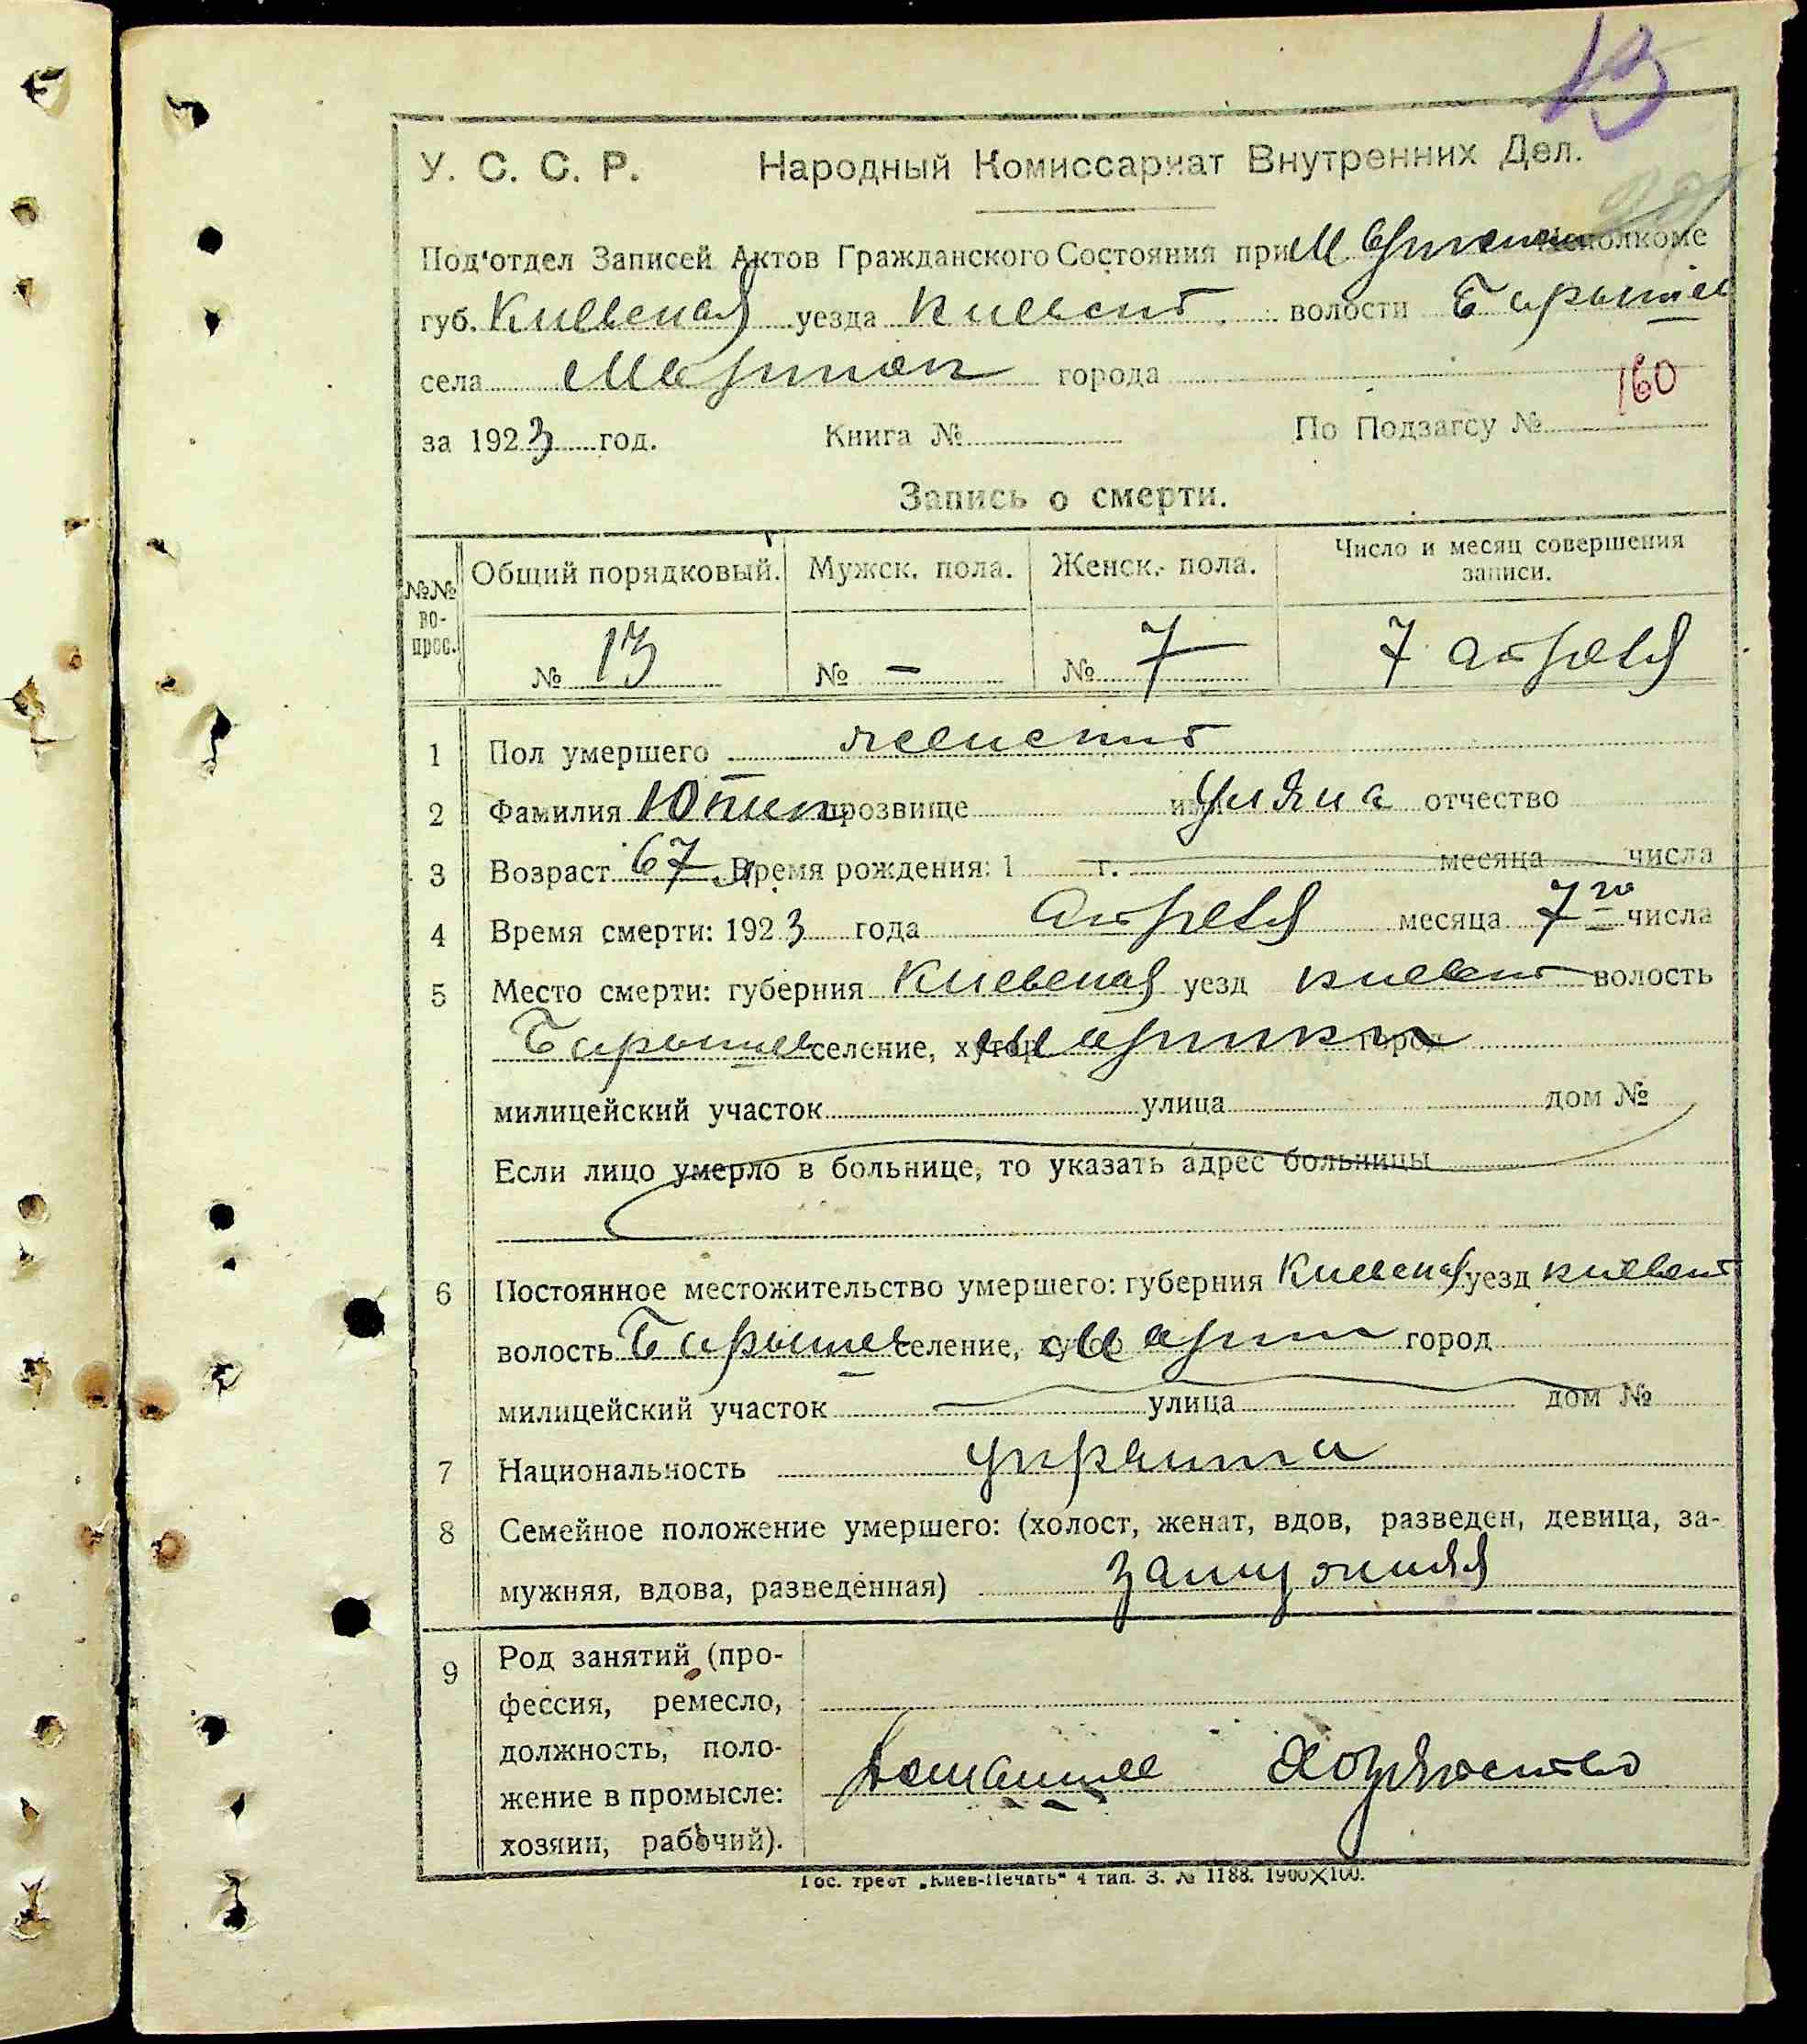 13
У. С. С. Р. Народный Комиссариат Внутренних Дел.
Под'отдел Записей Актов Гражданского Состояния при исполкоме
губ. Киевская уезда Киевск волости Барышев
села Мартюк города
160
за 1923 год. Книга № По Подзагсу №
Запись о смерти.
№№ вопрос. Общий порядковый. Мужск. пола. Женск. пола. Число и месяц совершения записи.
№ 13 № – № 7 7 апреля
1 Пол умершего женский
2 Фамилия прозвище имя Уляна отчество
3 Возраст 67 л. Время рождения: 1 г. месяца числа
4 Время смерти: 1923 года апреля месяца 7го числа
5 Место смерти: губерния Киевская уезд Киевск волость
Барышев селение, хутор город
милицейский участок улица дом №
Если лицо умерло в больнице, то указать адрес больницы
6 Постоянное местожительство умершего: губерния Киевская уезд Киевск
волость Барышев селение, хутор Март город
милицейский участок улица дом №
7 Национальность украинка
8 Семейное положение умершего: (холост, женат, вдов, разведен, девица, за-
мужняя, вдова, разведенная) замужняя
9 Род занятий (про-
фессия, ремесло,
должность, поло-
жение в промысле:
хозяин, рабочий).
домашнее хозяйство
Гос. трест „Киев-Печать“ 4 тип. З. № 1188. 1900×100.